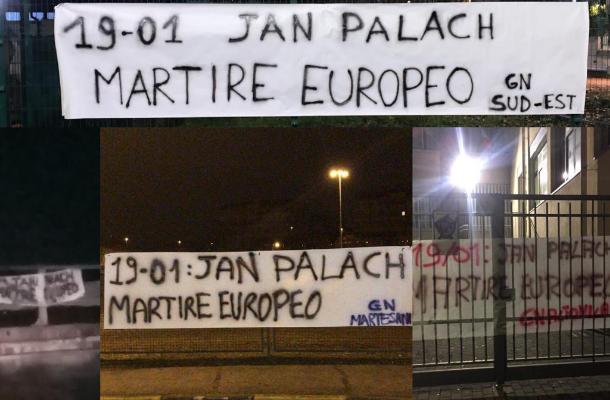 19-01 JAN PALACH
MARTIRE EUROPEO
GN
SUD-EST
19-01: JAN PALACH
MARTIRE EUROPEO
GN
19/01: JAN PALAC
MARTIRE EUROPE